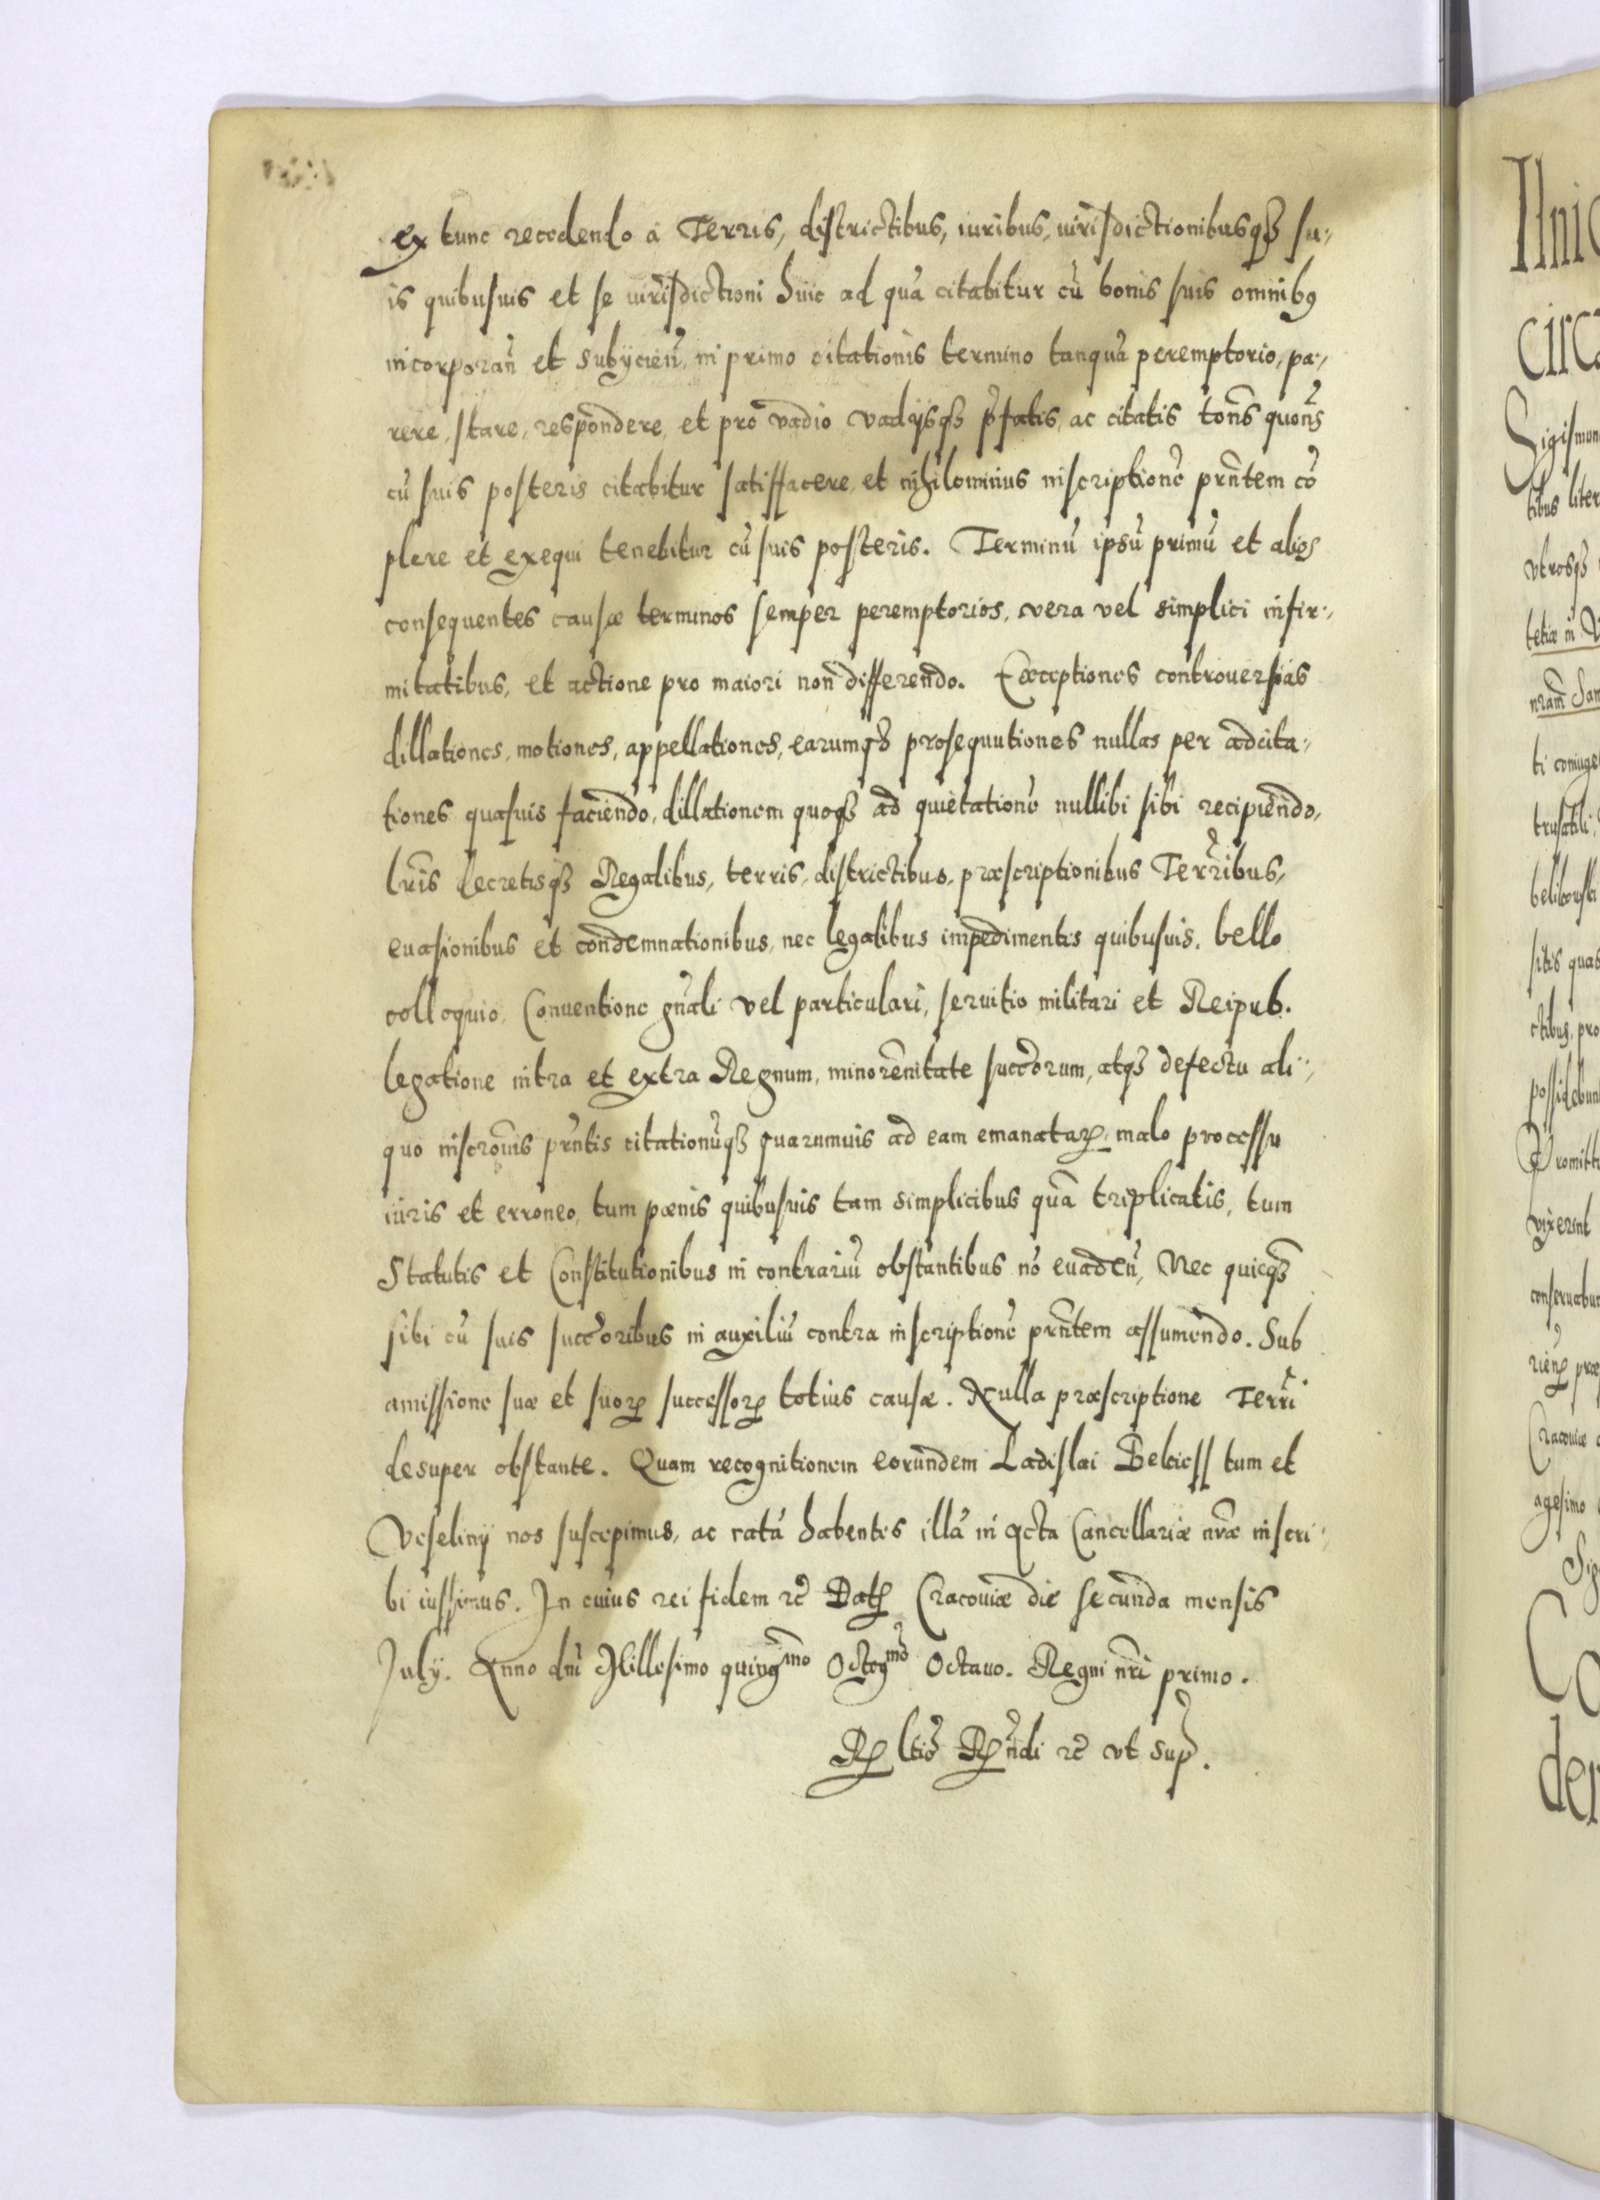 ex tunc recedendo a Terris, districtibus, iuribus, iurisdictionibusq₃ su,
is quibusuis et se iurisdictioni huic ad quā citabitur cū bonis suis omnibꝰ
incorporan̄ et subijcien̄, in primo citationis termino tanquā peremptorio, pa,
rere, stare, respondere, et pro vadio vadijsq₃ p̄fatis, ac citatis ton̄s quon̄s
cū suis posteris citabitur satisfacere, et nihilominus inscriptionē prn̄tem cō
plere et exequi tenebitur cū suis posteris. Terminū ipsū primū et alios
consequentes causæ terminos semper peremptorios, vera vel simplici infir,
mitatibus, et actione pro maiori non differendo. Exceptiones controuersias
dillationes, motiones, appellationes, earumq₃ prosequutiones nullas per adcita,
tiones quasuis faciendo, dillationem quoq₃ ad quietationē nullibi sibi recipiendo,
lr̄is decretisq₃ Regalibus, terris, districtibus, præscriptionibus Terr̄ribus,
euasionibus et condemnationibus, nec legalibus impedimentis quibusuis, bello
colloquio, Conuentione gn̄ali vel particulari, seruitio militari et Reipub.
legatione intra et extra Regnum, minorennitate succ̄orum, atq₃ defectu ali,
quo inscrōnis prn̄tis citationūq₃ quarumuis ad eam emanataꝝ, malo processu
iuris et erroneo, tum pœnis quibusuis tam simplicibus quā triplicatis, tum
Statutis et Constitutionibus in contrariū obstantibus nō euaden̄, Nec quicq₃
sibi cū suis succ̄oribus in auxiliū contra inscriptionē prn̄tem assumendo. Sub
amissione suæ et suoꝝ successoꝝ totius causæ. Nulla præscriptione Terr̄ri
desuper obstante. Quam recognitionem eorundem Ladislai Bekiess tum et
Veselinij nos suscepimus, ac ratā habentes illā in Acta Cancellariæ nr̄æ inscri,
bi iussimus. In cuius rei fidem ꝛc̄ Datꝭ Cracouiæ die secunda mensis
July. Anno dn̄i Millesimo quingmo Octogmo Octauo. Regni nr̄i primo.
Rꝝ ltio Rꝝndi ꝛc̄ vt sup̄.